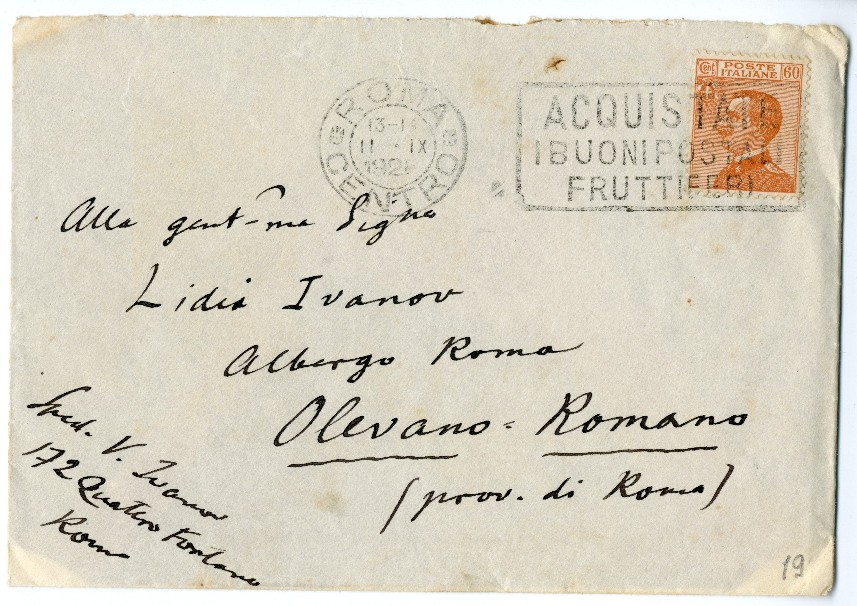 ROMA
CENTRO
13-14
11 - IX
192
ACQUISTATE
I BUONI POSTALI
FRUTTIFERI
Cent POSTE ITALIANE 60
Alla gent-ma Signa
Lidia Ivanov
Albergo Roma
Olevano - Romano
(prov. di Roma)
Sped. V. Ivanov
172 Quattro Fontane
Roma
19